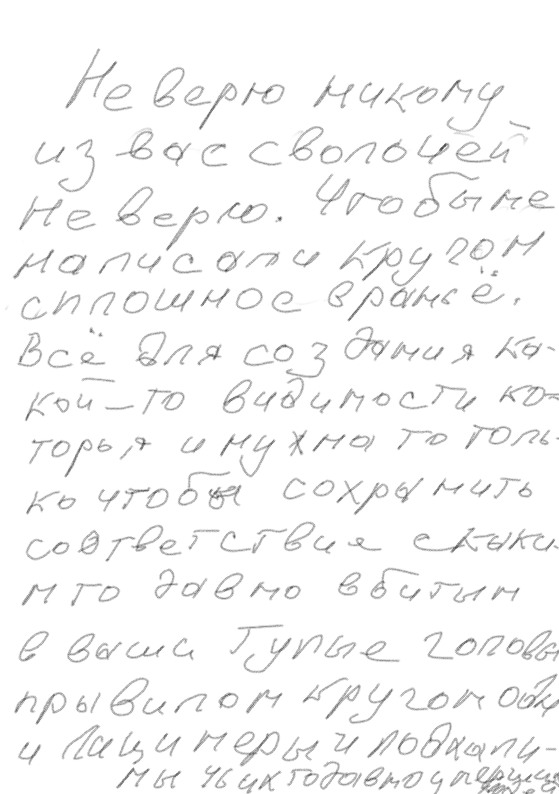 Не верю никому
из вас сволочей
не верю. Что бы не
написали кругом
сплошное враньё.
Всё для создания ка-
кой-то видимости ко-
торыя и нужна то толь-
ко чтобы сохранить
соответствия с каки-
м то давно вбитым
в ваши тупые головы
правилом кругом
и лицимеры и подхали-
мы чьих то давно